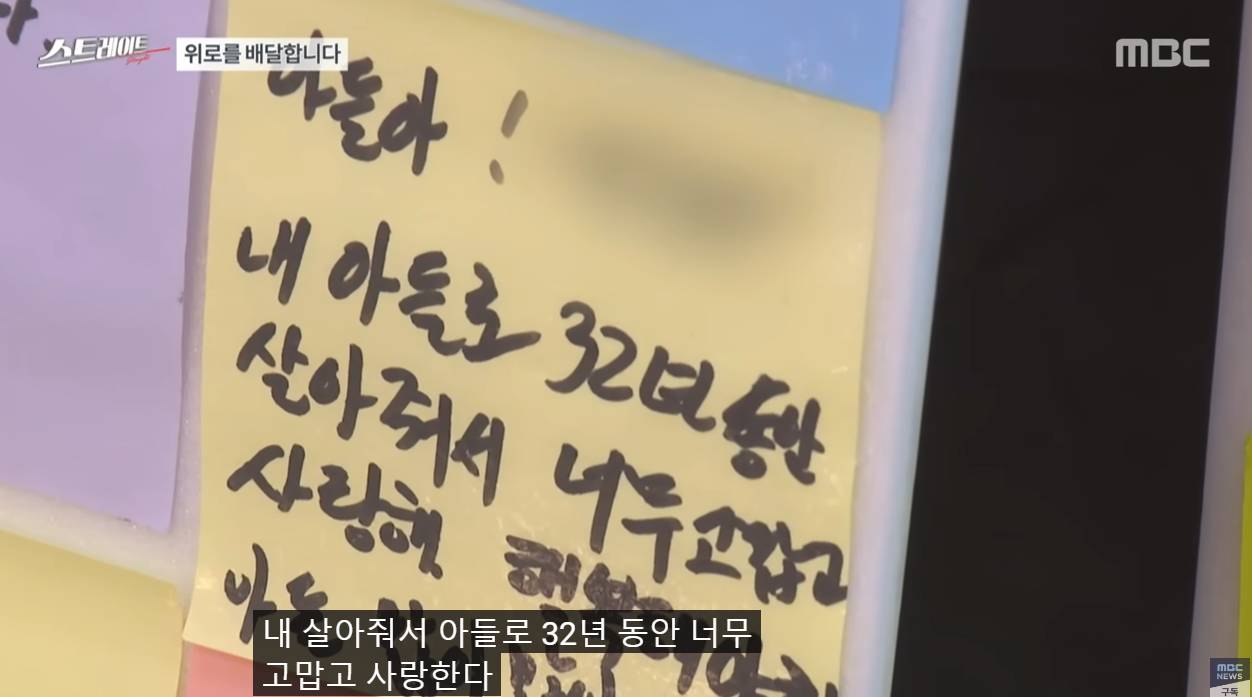 스트레이트
위로를 배달합니다
MBC
아들아!
내 아들로 32년 동안
살아줘서 너무 고맙고
사랑해
내 살아줘서 아들로 32년 동안 너무
고맙고 사랑한다
MBC
NEWS
구독